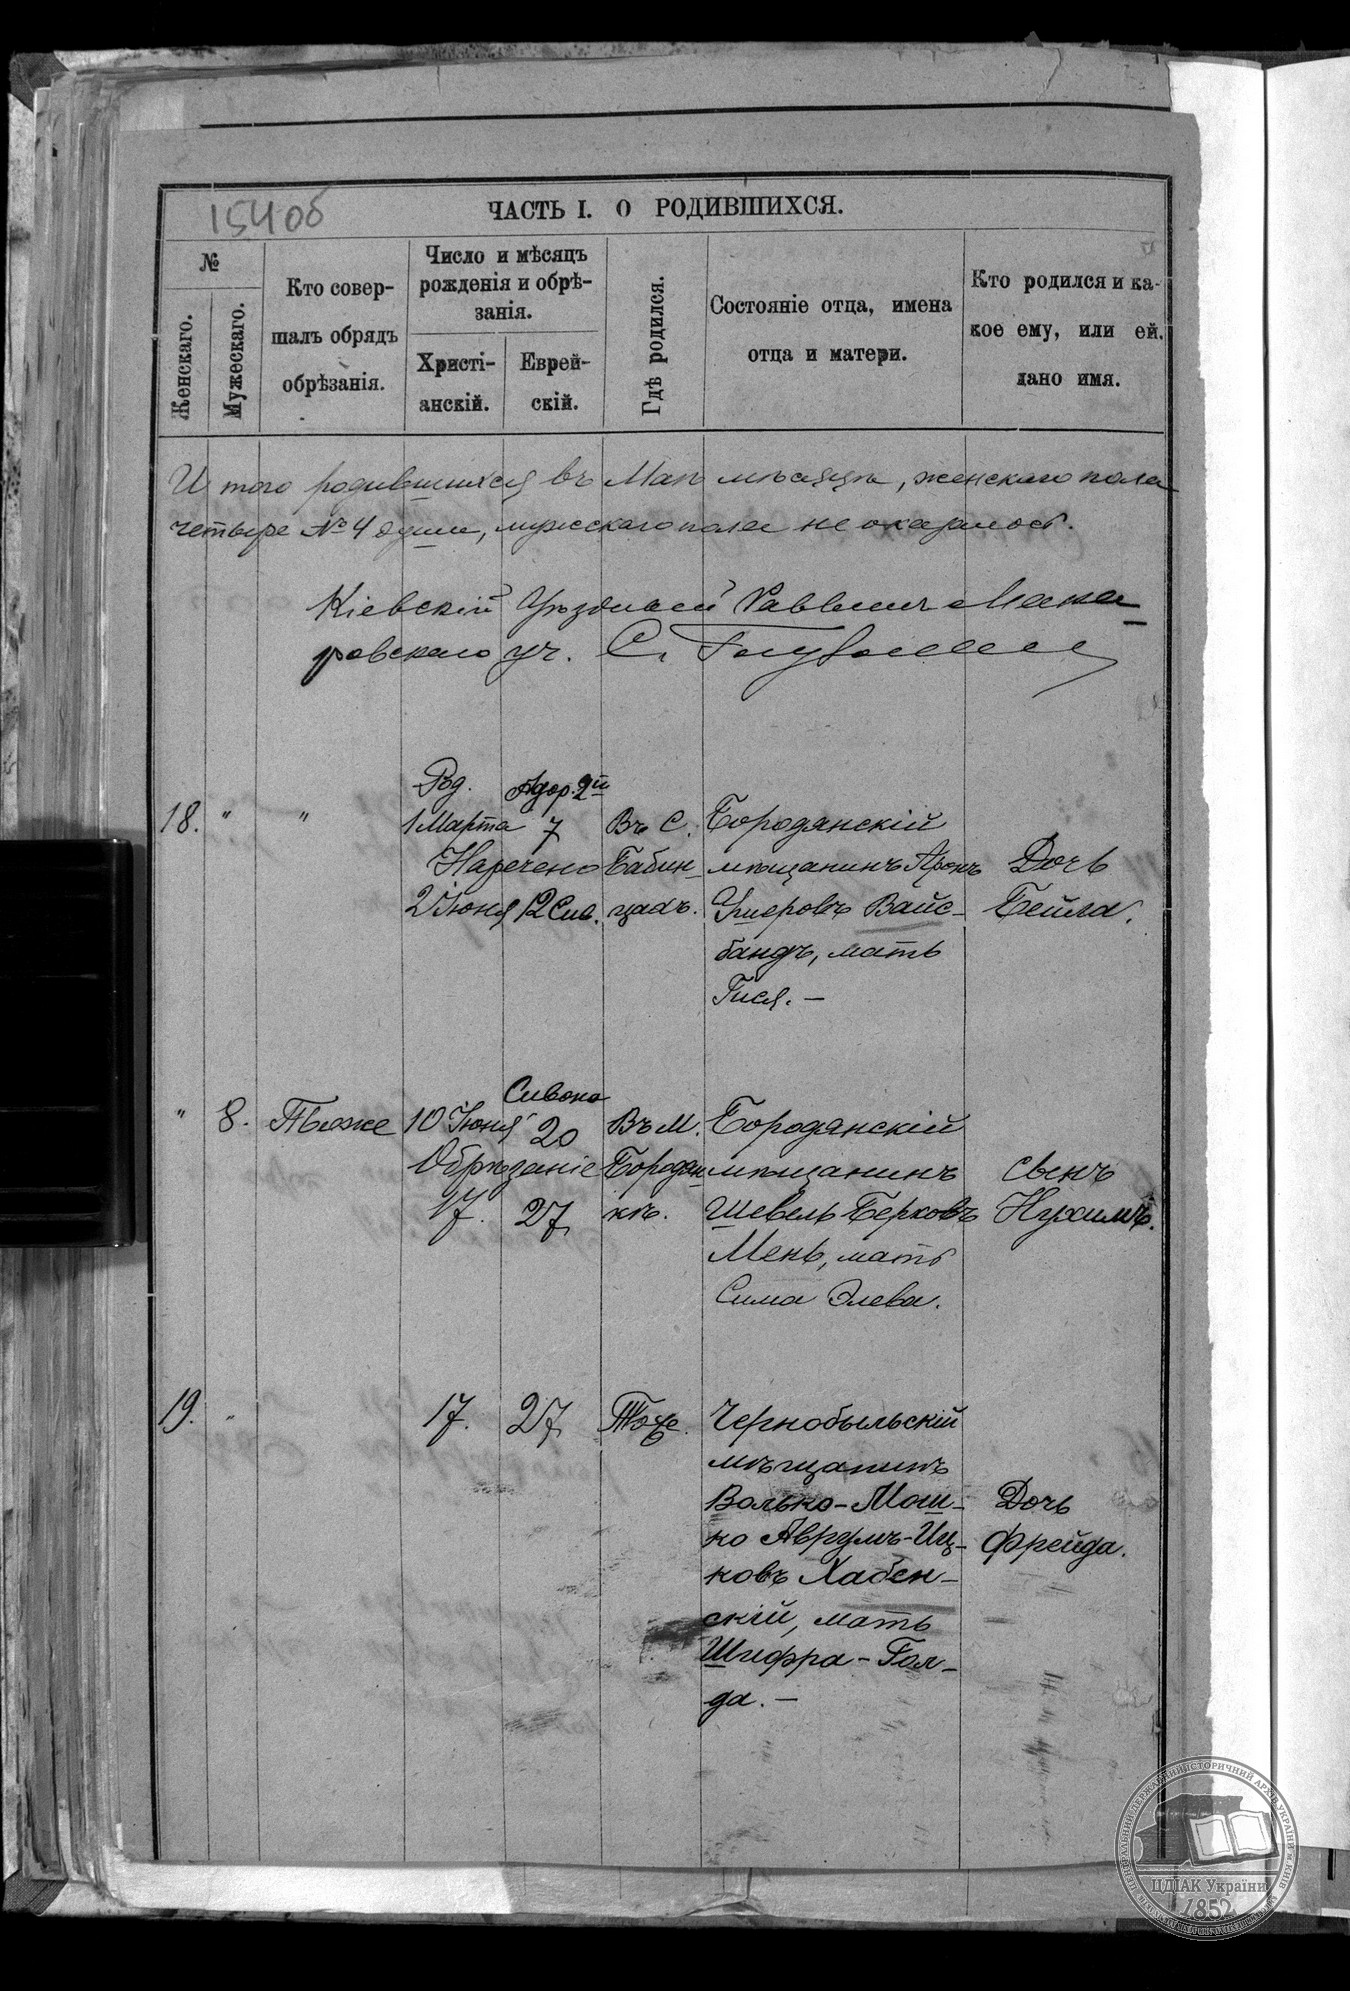 154об
ЧАСТЬ I. О РОДИВШИХСЯ.
№
Женскаго.
Мужескаго.
Кто совер-
шалъ обрядъ
обрѣзанія.
Число и мѣсяцъ
рожденія и обрѣ-
занія.
Христі-
анскій.
Еврей-
скій.
Гдѣ родился.
Состояніе отца, имена
отца и матери.
Кто родился и ка-
кое ему, или ей.
дано имя.
И того родившихся въ Маѣ мѣсяцѣ, женскаго пола
четыре № 4 души, мужскаго пола не оказалось.
Кіевскій Уѣздный Раввинъ Мака-
ровскаго уч. С.
18. " "
Род. 1 Марта
Наречено
2 Іюня
Адор. 2й
7
12 Сив.
Въ С.
Бабин-
цахъ.
Бородянскій
мѣщанинъ Аронъ
Ушеровъ Вайс-
бандъ, мать
Гися. —
Дочь
Бейла.
" 8. Тѣоже
10 Іюня
Обрѣзаніе
17.
Сивона
20
27
Въ М.
Бородян-
кѣ.
Бородянскій
мѣщанинъ
Шевель Берковъ
Мень, мать
Сима Элева.
сынъ
Нухимъ.
19. "
17.
27
Тоже.
Чернобыльскій
мѣщанинъ
Волько-Мош-
ко Аврумъ-Иц-
ковъ Хабен-
скій, мать
Шифра-Гол-
да. —
Дочь
Фрейда.
ЦДІАК України
1852